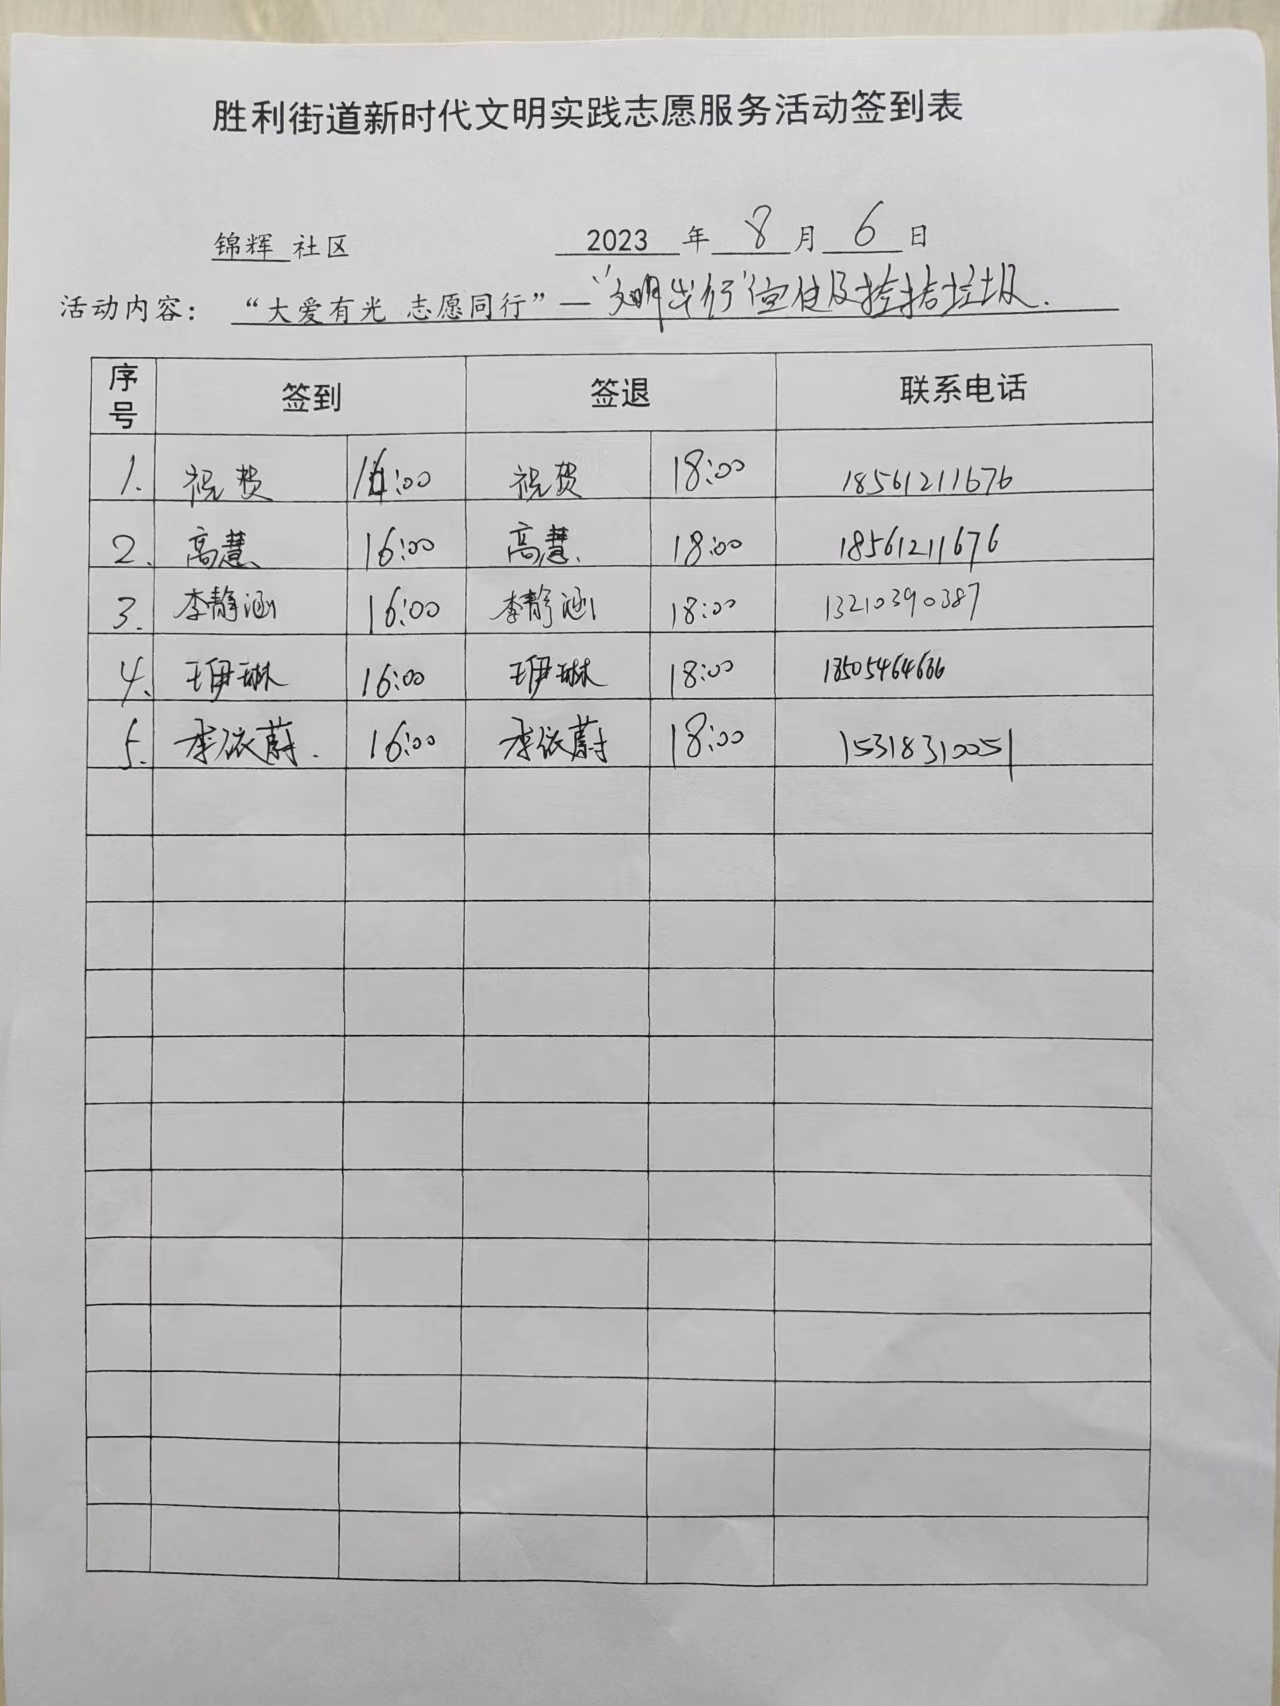 胜利街道新时代文明实践志愿服务活动签到表
锦辉 社区 2023 年 8 月 6 日
活动内容：“大爱有光 志愿同行”—“文明出行”宣传及捡拾垃圾.
序号 签到 签退 联系电话
1. 祝贺 16:00 祝贺 18:00 18561211676
2. 高慧 16:00 高慧. 18:00 18561211676
3. 李静涵 16:00 李静涵 18:00 13210390387
4. 王伊琳 16:00 王伊琳 18:00
5. 李依蔚. 16:00 李依蔚 18:00 15318310051